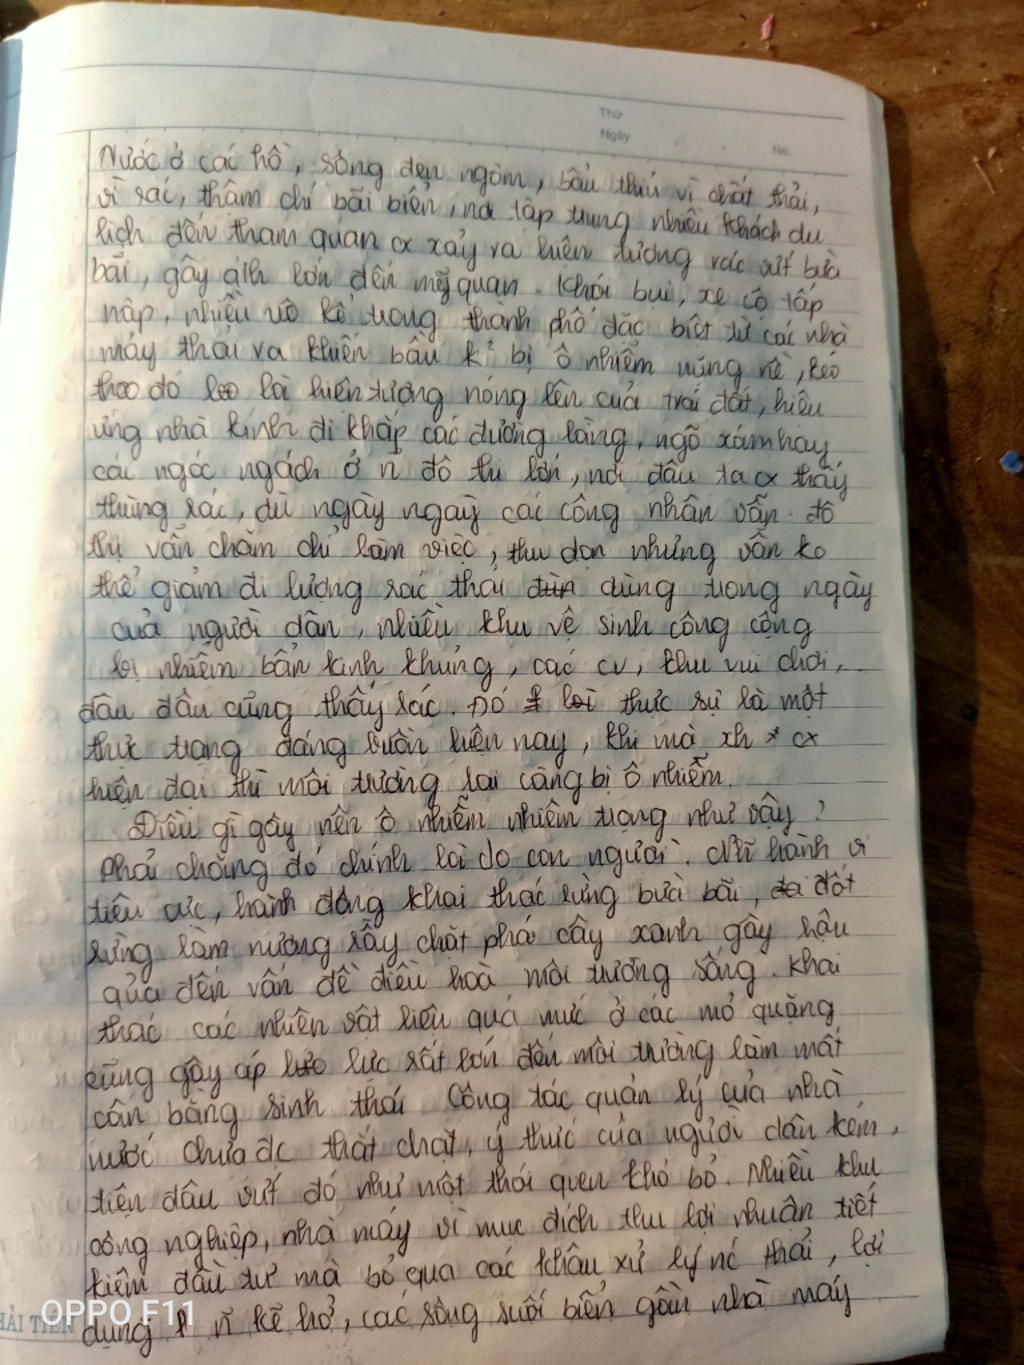 Thứ
Ngày
No.
Nước ở các hồ, sông đen ngòm, bẩu thíu vì chất thải,
vì rác, thậm chí bãi biển, nơi tập trung nhiều khách du
lịch đến tham quan cx xảy ra hiện tượng rác vứt bừa
bãi, gây ảh lớn đến mỹ quan. Khói bụi, xe cộ tấp
nập, nhiều vô kể trong thành phố đặc biệt từ các nhà
máy thải ra khiến bầu k² bị ô nhiễm nặng nề, kéo
theo đó là hiện tượng nóng lên của trái đất, hiệu
ứng nhà kính đi khắp các đường làng, ngõ xóm hay
cái ngóc ngách ở n đô thị lớn, nơi đâu ta cx thấy
thùng rác, dù ngày ngày các công nhân vẫn đô
thị vẫn chăm chỉ làm việc, thu dọn nhưng vẫn ko
thể giảm đi lượng rác thải dùng trong ngày
của người dân, nhiều khu vệ sinh công cộng
bị nhiễm bẩn kinh khủng, các cv, khu vui chơi,
đâu đâu cũng thấy rác. Đó thực sự là một
thực trạng đáng buồn hiện nay, khi mà xh cx
hiện đại thì môi trường lại càng bị ô nhiễm.
Điều gì gây nên ô nhiễm nhiêm trọng như vậy?
Phải chăng đó chính là do con người. Nh̃ hành vi
tiêu cực, hành động khai thác rừng bừa bãi, đốt
rừng làm nương rẫy chặt phá cây xanh gây hậu
quả đến vấn đề điều hoà môi trường sống. Khai
thác các nhiên vật liệu quá mức ở các mỏ quặng
cũng gây áp lực rất lớn đến môi trường làm mất
cân bằng sinh thái. Công tác quản lý của nhà
nước chưa đc thắt chặt, ý thức của người dân kém,
tiện đâu vứt đó như một thói quen khó bỏ. Nhiều khu
công nghiệp, nhà máy vì mục đích thu lợi nhuận tiết
kiệm đầu tư mà bỏ qua các khâu xử lý nc thải, lợi
dụng ñ kẽ hở, các sông suối biển gần nhà máy
HẢI TIẾN
OPPO F11